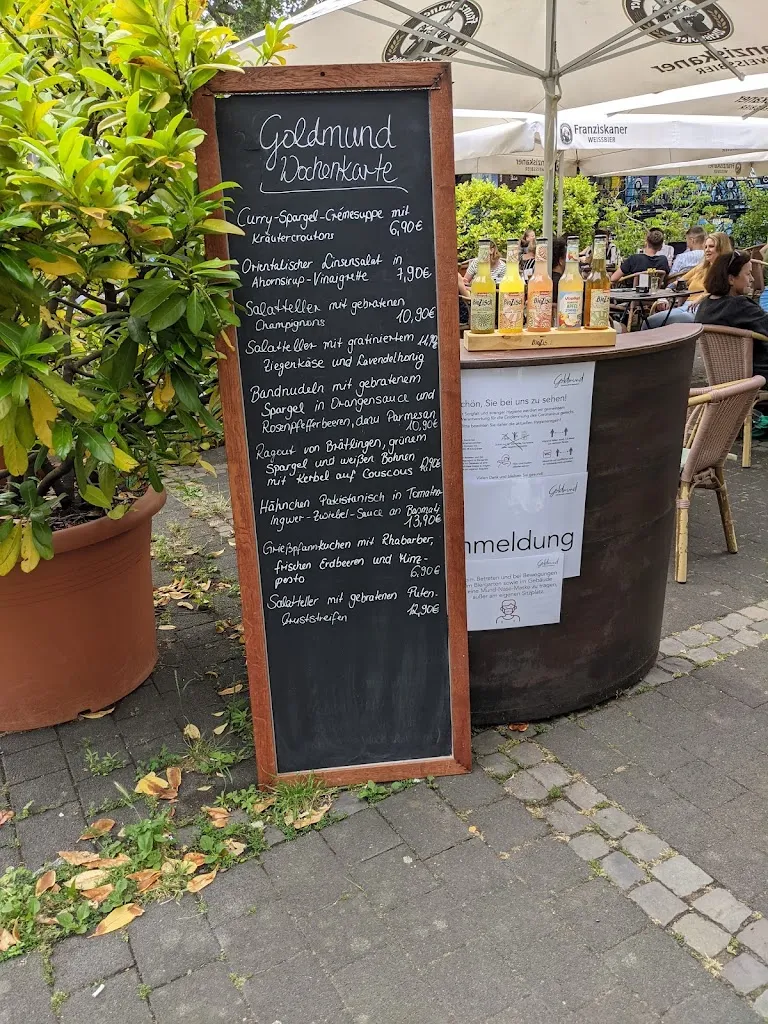 Goldmund
Wochenkarte
Curry-Spargel-Crémesuppe mit
Kräutercroutons 6,90€
Orientalischer Linsensalat in
Ahornsirup-Vinaigrette 7,90€
Salatteller mit gebratenen
Champignons 10,90€
Salatteller mit gratiniertem
Ziegenkäse und Lavendelhonig
Bandnudeln mit gebratenem
Spargel in Orangensauce und
Rosenpfefferbeeren, dazu Parmesan
10,90€
Ragout von Brätlingen, grünem
Spargel und weißen Bohnen
mit Kerbel auf Couscous
Hähnchen Pakistanisch in Tomaten-
Ingwer-Zwiebel-Sauce an Basmati
13,90€
Grießpfannkuchen mit Rhabarber,
frischen Erdbeeren und Minz-
pesto 6,90€
Salatteller mit gebratenen Puten-
bruststreifen 12,90€
Franziskaner
WEISSBIER
Franziskaner
WEISSBIER
BioZisch
Goldmund
chön, Sie bei uns zu sehen!
Goldmund
nmeldung
Goldmund
Betreten und bei Bewegungen
Biergarten sowie im Gebäude
eine Mund-Nase-Maske zu tragen,
außer am eigenen Sitzplatz.